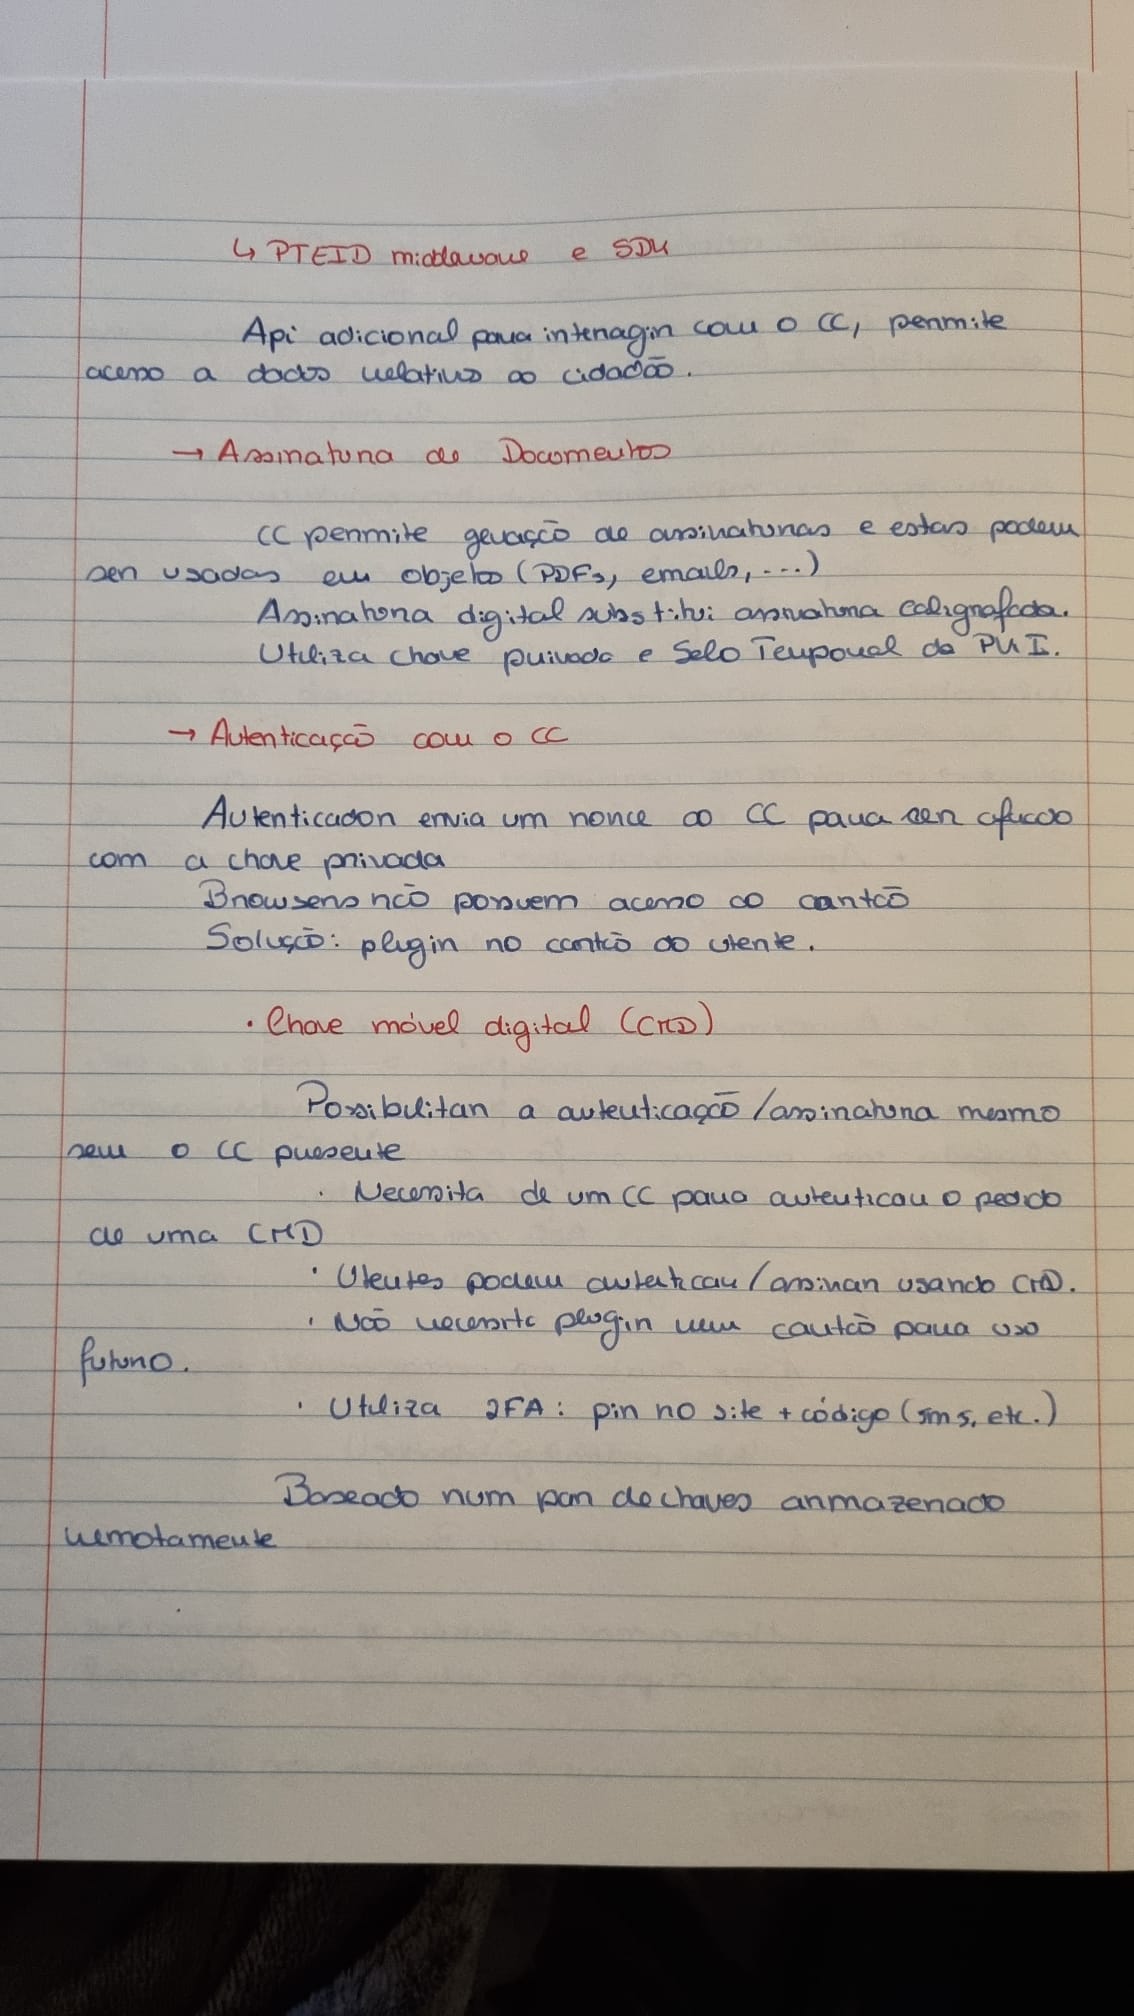 ↳ PTEID middleware e SDK
Api adicional para interagir com o CC, permite
acesso a dados relativos ao cidadão.
→ Assinatura de Documentos
CC permite geração de assinaturas e estas podem
ser usadas em objetos (PDFs, emails, ...)
Assinatura digital substitui assinatura caligrafada.
Utiliza chave privada e Selo Temporal da PKI.
→ Autenticação com o CC
Autenticador envia um nonce ao CC para ser cifrado
com a chave privada
Browsers não possuem acesso ao cartão
Solução: plugin no cartão do utente.
· Chave móvel digital (CMD)
Possibilitar a autenticação/assinatura mesmo
sem o CC presente
· Necessita de um CC para autenticar o pedido
de uma CMD
· Utentes podem autenticar/assinar usando CMD.
· Não necessita plugin nem cartão para uso
futuro.
· Utiliza 2FA: pin no site + código (sms, etc.)
Baseado num par de chaves armazenado
remotamente